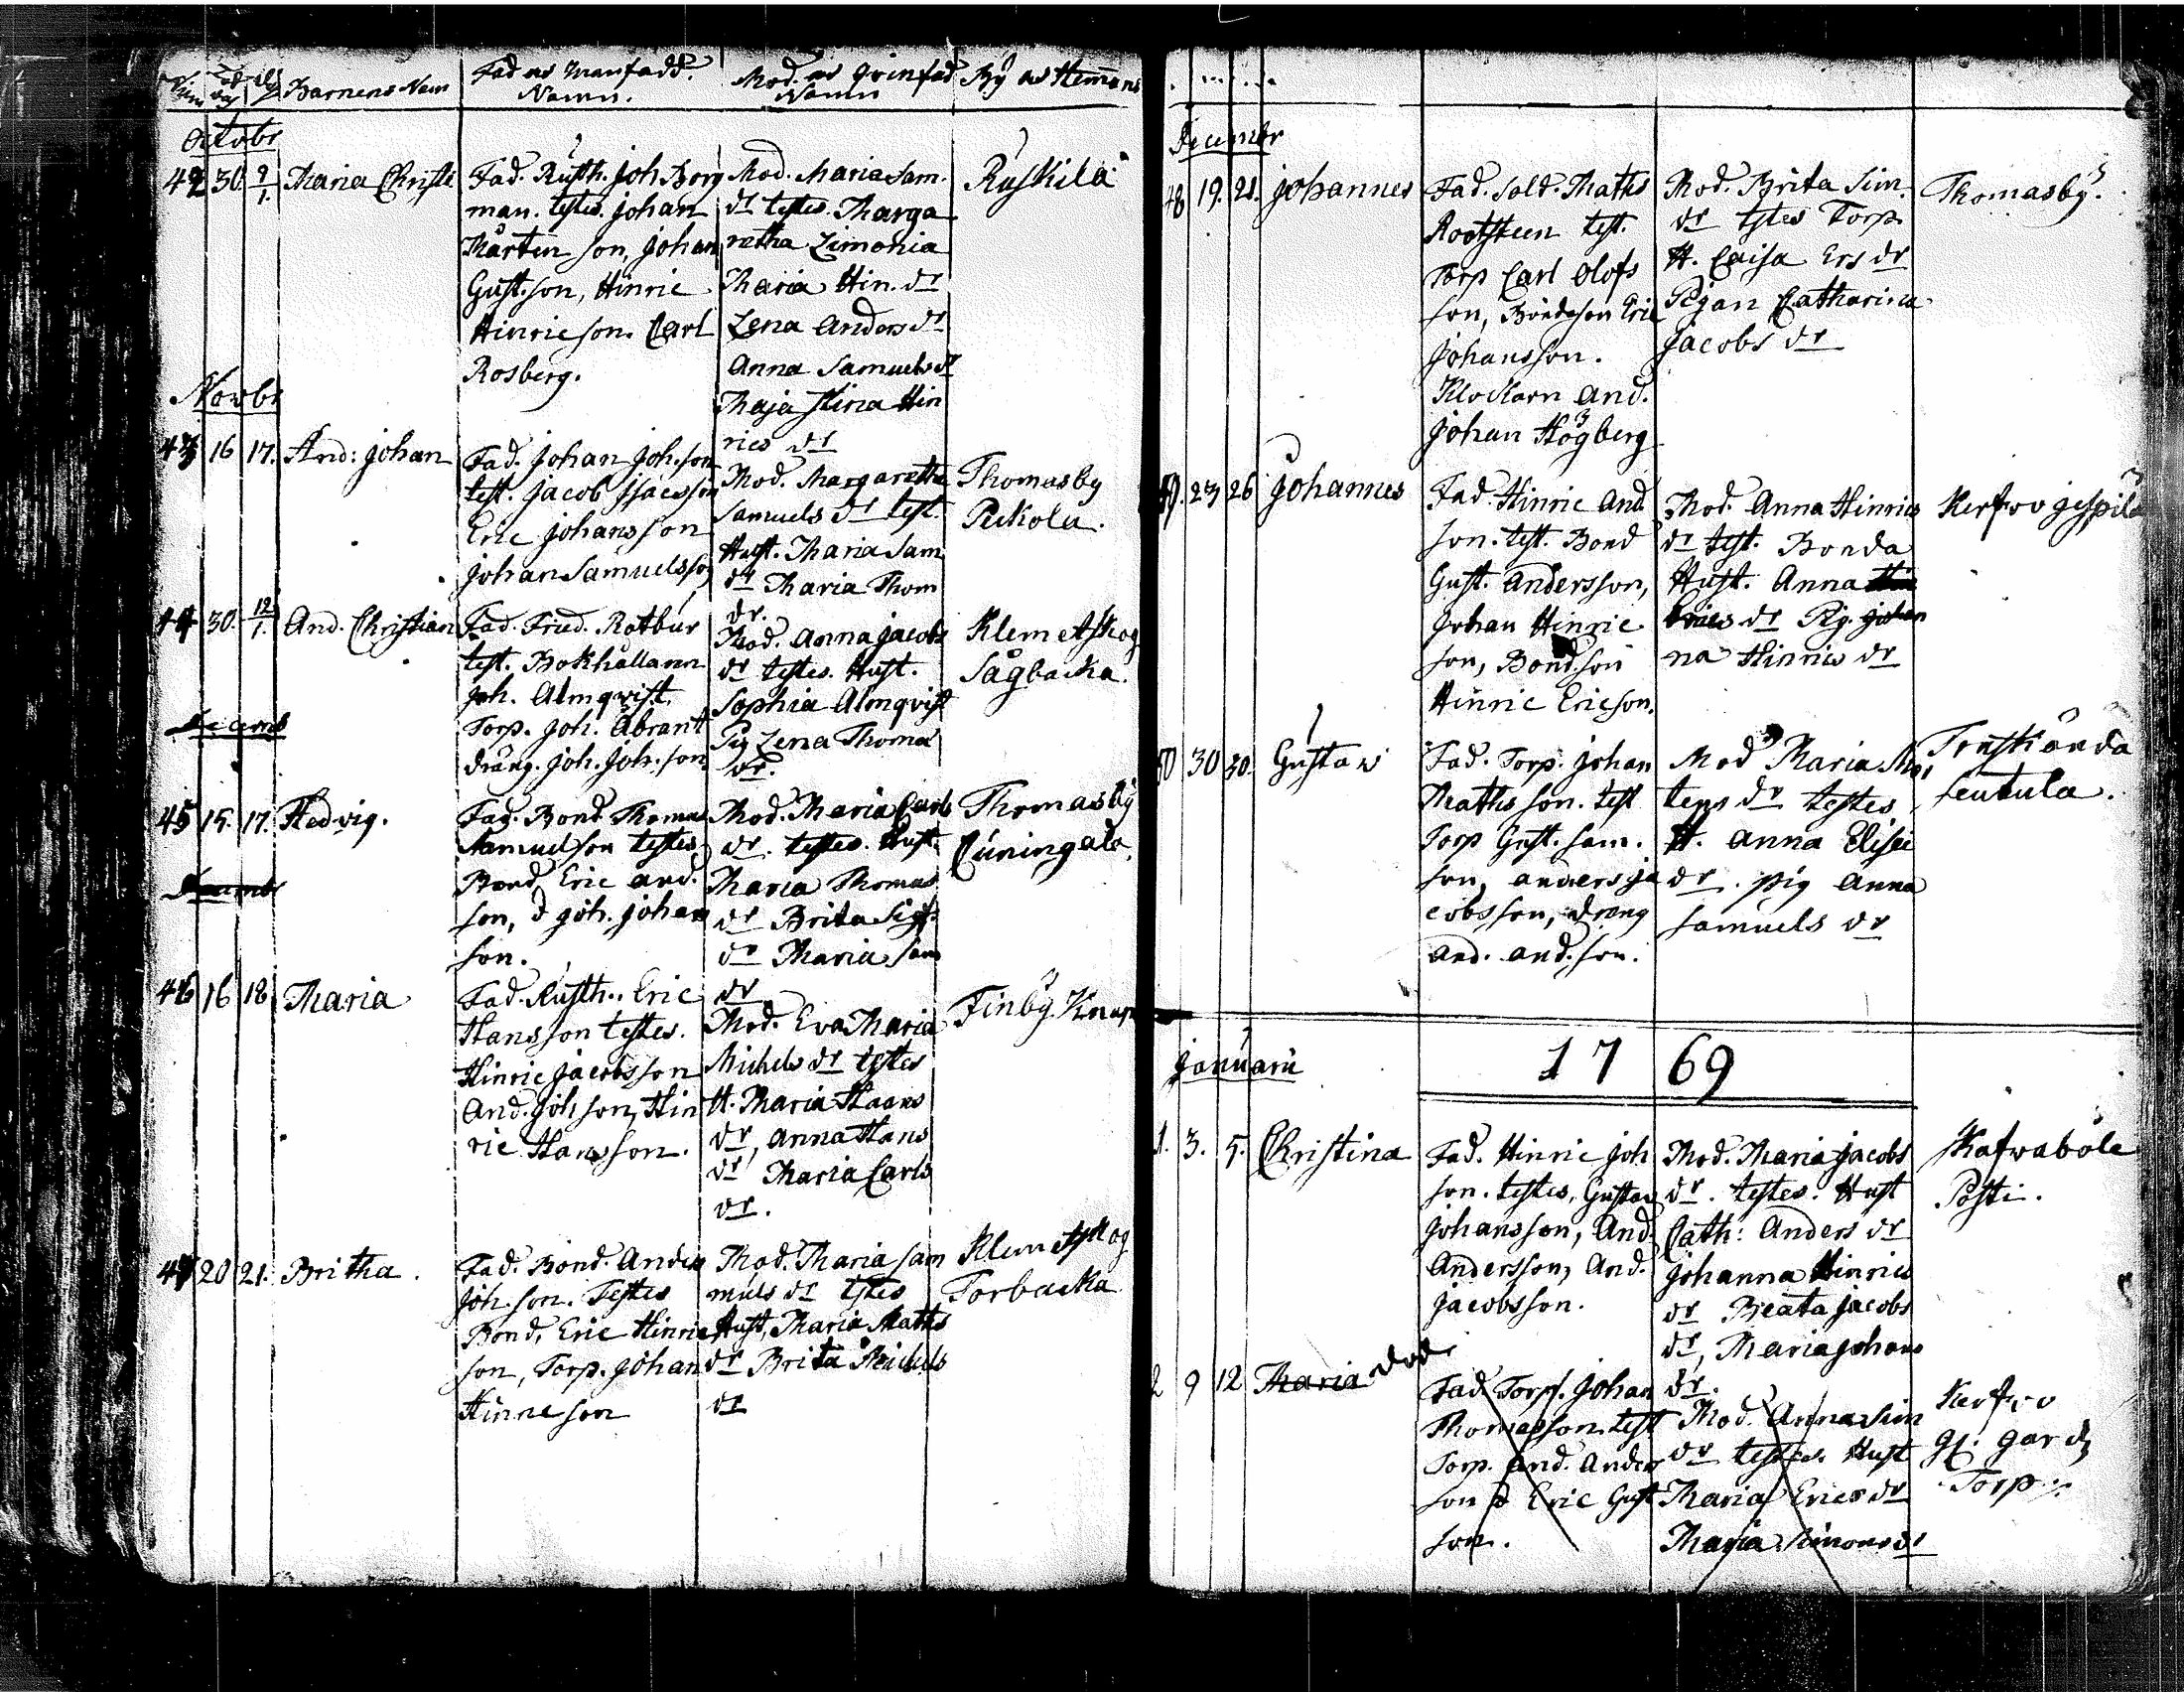 Num
föd dag
Barnens Nam
Fad. os manfadd.
Namn.
Mod. os qvinfad
Namn
By os Hemans
Octobr
42 30. 9/1. Maria Christi
Fad. Rusth. Joh Borg
man. testes. Johan
Mårten son, Johan
Gust. son, Hinric
Hinric son. Carl
Rosberg.
Mod. Maria Sam.
dr testes. Marga
retha Limonia
Maria Hin. dr
Lena Anders dr
Anna Samuels dr
Maja Stina Hin
rics dr
Ruskila
Novbr
43 16 17. And: Johan
Fad. Johan Joh. son
test. Jacob Isacsson
Eric Johansson
Johan Samuelsson
Mod. Margaretha
Samuels dr test.
Hust. Maria Sam
dr Maria Thom
dr.
Thomasby
Pukola.
44 30. 12/1. And. Christian
Fad. Fried. Rotbur
test. Bokhållarn
Joh. Almqvist
Torp. Joh. Abrant
dräng. Joh. Joh. son
Mod. Anna Jacobs
dr testes. Hust.
Sophia Almqvist
Pig Lena Thoma
dr.
Klemetskog
Sågbacka.
Decemb
45 15. 17. Hedvig.
Fad. Bond Thomas
Samuelson testes
Bond Eric And.
son, d Joh. Johan
son.
Mod. Maria Carls
dr. testes. Hust.
Maria Thomas
dr Brita Sigf.
dr Maria Sam
dr
Thomasby
Cuningala.
Decembr
46 16 18 Maria
Fad. Rusth. Eric
Hansson testes.
Hinric Jacobsson
And. Joh son, Hin
ric Hansson.
Mod. Eva Maria
Michels dr testes
H. Maria Hans
dr, Anna Hans
dr Maria Carls
dr.
Finby. Knap
47 20 21. Britha.
Fad. Bond. Anders
Joh. son. Testes
Bond, Eric Hinric
son, Torp. Johan
Hinric son
Mod. Maria Sam
muels dr testes
Hust, Maria Maths
dr Brita Michels
dr
Klemetskog
Torbacka
Decembr
48 19. 21. Johannes
Fad. Sold. Maths
Rootsteen test.
Torp Carl Olofs
son, Bondeson Eric
Johansson.
Klockarn And.
Johan Högberg
Mod. Brita Sim.
dr testes Torp.
H. Caisa Ers dr
Pigan Catharina
Jacobs dr
Thomasby.
49. 23 26 Johannes
Fad Hinric And.
son. test. Bond
Gust. Andersson,
Johan Hinric
son, Bond.son
Hinric Ericson.
Mod. Anna Hinrics
dr test. Bonda
Hust. Anna Hin
rics dr Pig. Johan
na Hinrics dr
Kerfvo jespila
50 30 30. Gustav
Fad. Torp. Johan
Maths son. test
Torp Gust. Sam.
son, Anders Ja
cobsson, dräng
And. And. son.
Mod Maria Mår
tens dr testes
H. Anna Elisæ
dr. pig Anna
Samuels dr
Seutula.
Januarii
17 69
1. 3. 5. Christina
Fad. Hinric Joh
son. testes, Gustav
Johansson, And.
Andersson, And.
Jacobsson.
Mod. Maria Jacobs
dr. testes. Hust
Cath: Anders dr
Johanna Hinrics
dr Beata Jacobs
dr, Maria Johans
dr.
Skafvaböle
Posti.
2 9 12 Maria död
Fad. Torp. Johan
Thomasson. test
Torp. And. Anders
son d Eric Gust
son.
Mod. Anna Sim
dr testes. Hust
Maria Erics dr
Maria Simons dr
Kerfvo
gl: gårds
Torp.